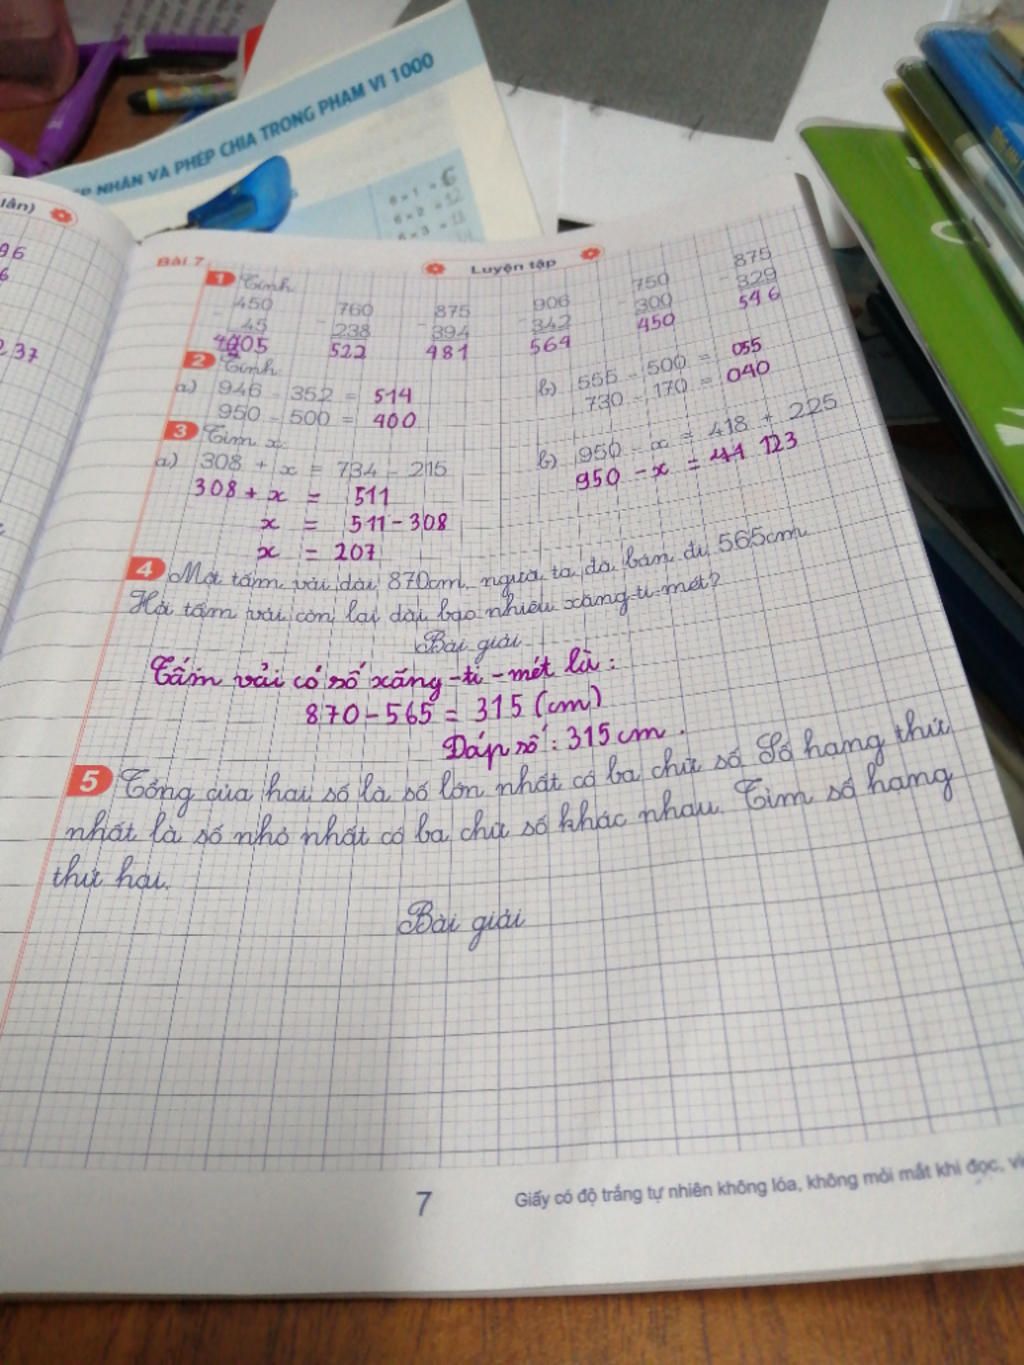 PHÉP NHÂN VÀ PHÉP CHIA TRONG PHẠM VI 1000
6 × 1 = 6
6 × 2 = 12
6 × 3 = 18
lần)
96
6
2,37
Bài 7 Luyện tập
1 Tính
450 760 875 906 750 875
- 45 - 238 - 394 - 342 - 300 - 329
405 522 481 564 450 546
2 Tính
a) 946 - 352 = 514 b) 555 - 500 = 055
950 - 500 = 400 730 - 170 = 040
3 Tìm x
a) 308 + x = 734 - 215 b) 950 - x = 418 + 225
308 + x = 511 950 - x = 123
x = 511 - 308
x = 207
4 Một tấm vải dài 870cm, người ta đã bán đi 565cm.
Hỏi tấm vải còn lại dài bao nhiêu xăng-ti-mét?
Bài giải
Tấm vải có số xăng-ti-mét là:
870 - 565 = 315 (cm)
Đáp số: 315cm.
5 Tổng của hai số là số lớn nhất có ba chữ số. Số hạng thứ
nhất là số nhỏ nhất có ba chữ số khác nhau. Tìm số hạng
thứ hai.
Bài giải
7
Giấy có độ trắng tự nhiên không lóa, không mỏi mắt khi đọc,